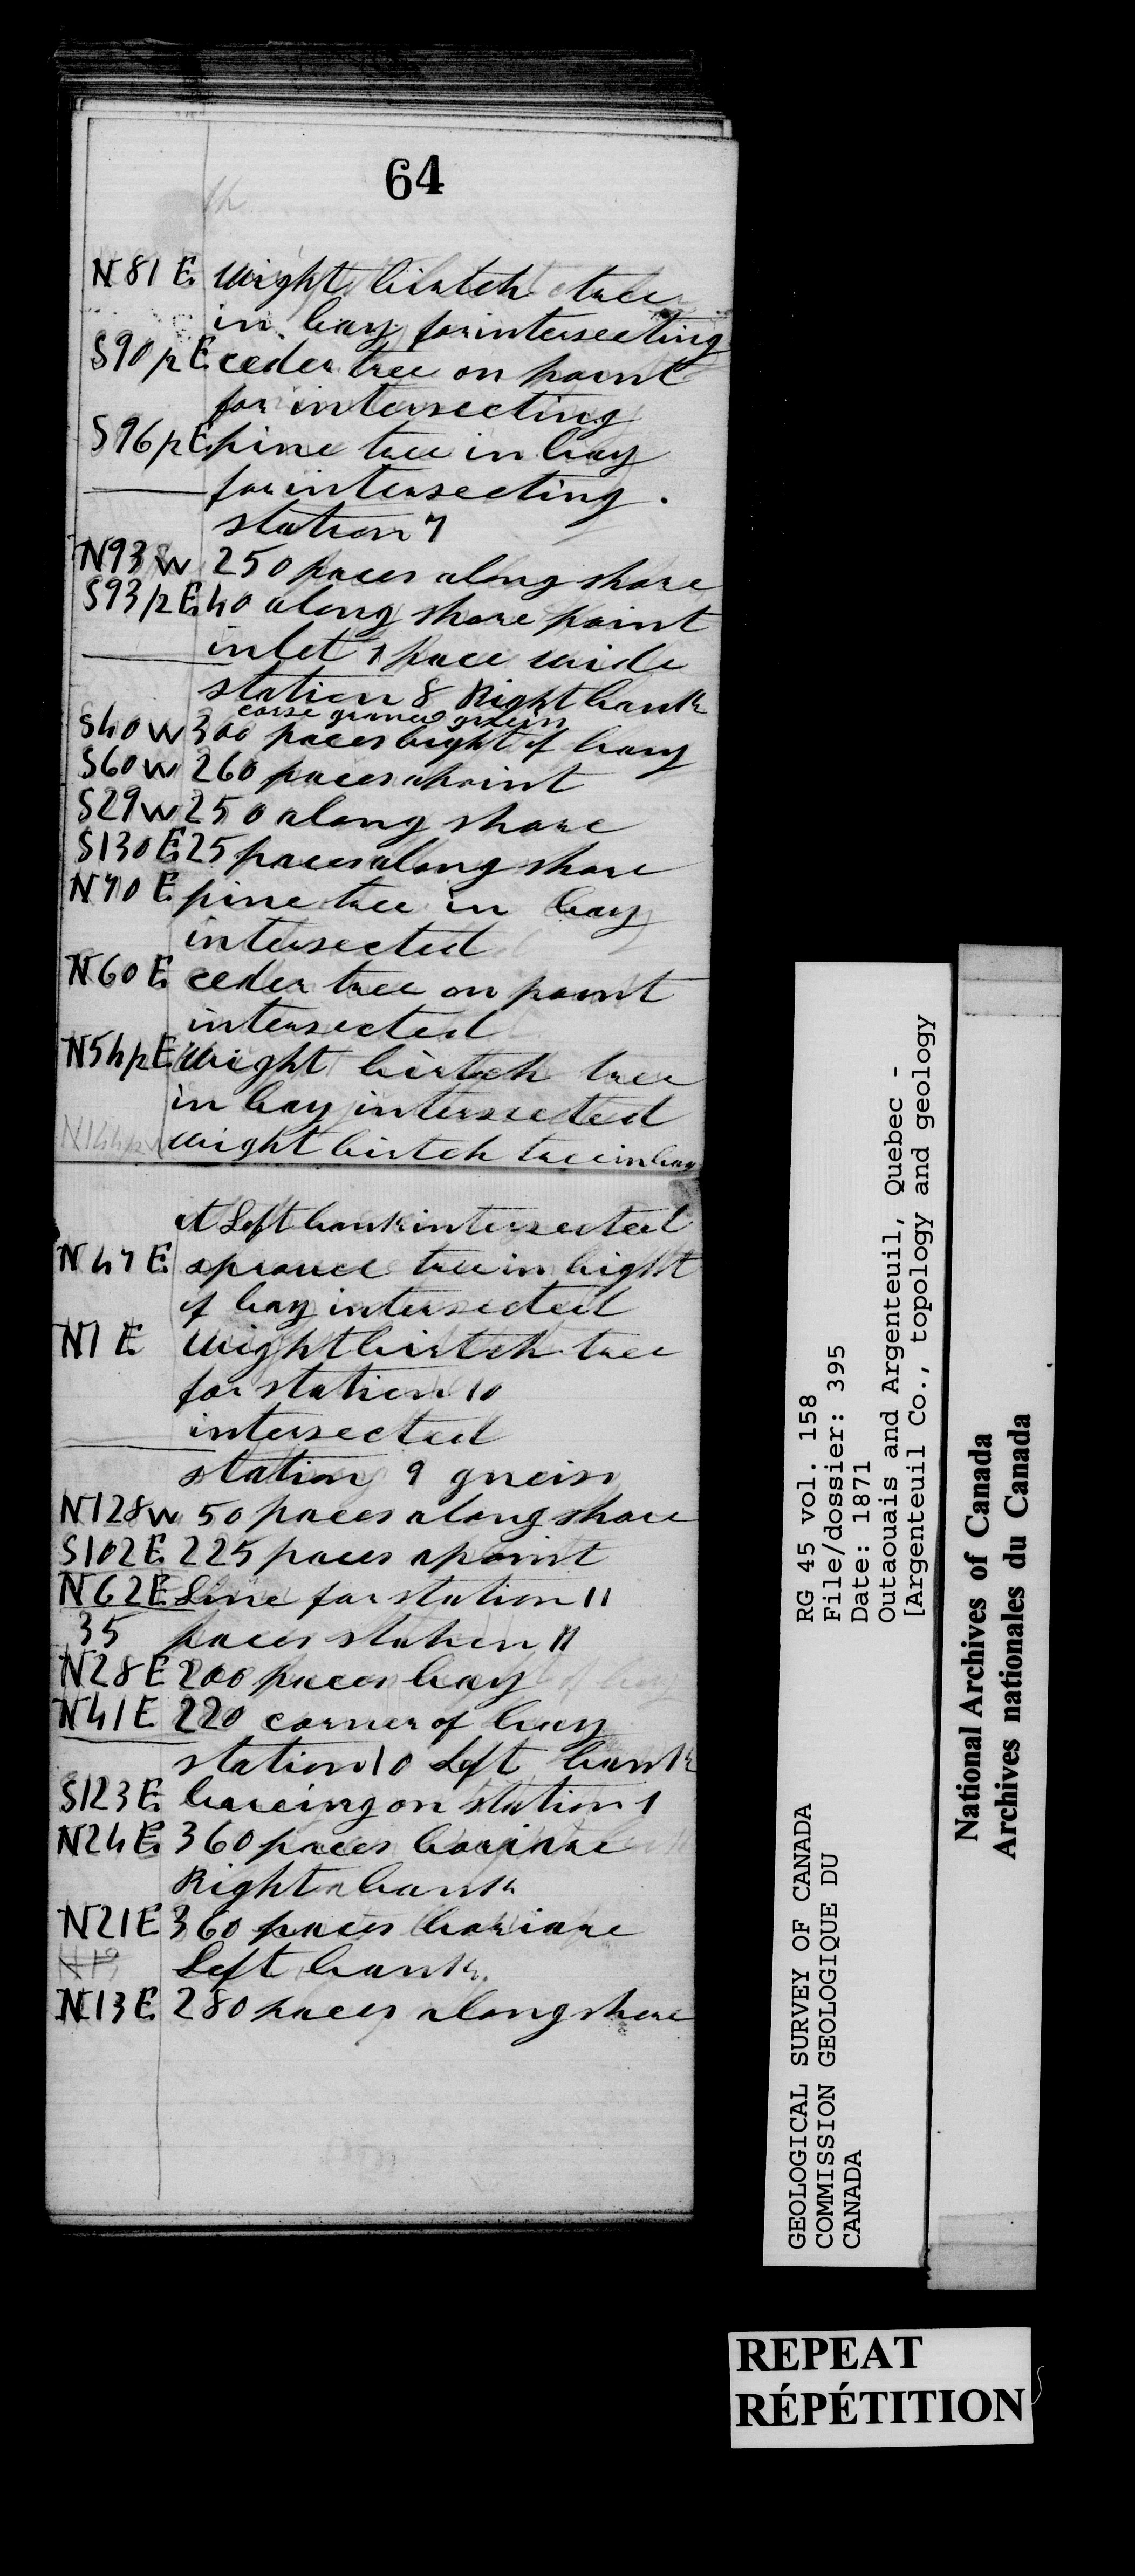 64
N81E Wright birtch tree
in bay for intersecting
S90½E ceder tree on point
for intersecting
S96½E pine tree in bay
for intersecting.
station 7
N93W 250 paces along shore
S93½E 40 along shore point
inlet 1 pace wide
station 8 Right bank
corse graned gneiss
S40W 300 paces bight of bay
S60W 260 paces apoint
S29W 250 along shore
S130E 25 paces along shore
N70E pine tree in bay
intersected
N60E ceder tree on point
intersected
N54½E Wright birtch tree
in bay intersected
N144½W Wright birtch tree in bay
at Left bank intersected
N47E sprouce tree in bight
of bay intersected
N1E Wright birtch tree
for station 10
intersected
station 9 gneiss
N128W 50 paces along shore
S102E 225 paces apoint
N62E Line for station 11
35 paces station 11
N28E 200 paces bay
N41E 220 corner of bay
station 10 Left bank
S123E bareing on station 1
N24E 360 paces
Right bank
N21E 360 paces
N19 Left bank
N13E 280 paces along shore
GEOLOGICAL SURVEY OF CANADA
COMMISSION GEOLOGIQUE DU
CANADA
RG 45 vol. 158
File/dossier: 395
Date: 1871
Outaouais and Argenteuil, Quebec -
[Argenteuil Co., topology and geology
National Archives of Canada
Archives nationales du Canada
REPEAT
RÉPÉTITION